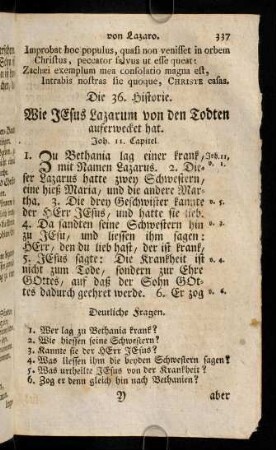 von Lazaro. 337
Improbat hoc populus, quasi non venisset in orbem
Christus, peccator salvus ut esse queat:
Zachæi exemplum mea consolatio magna est,
Intrabis nostras sic quoque, CHRISTE casas.
Die 36. Historie.
Wie JEsus Lazarum von den Todten
auferwecket hat.
Joh. 11. Capitel.
1. Zu Bethania lag einer krank, Joh. 11,
mit Namen Lazarus. 2. Die- v. 1.
ser Lazarus hatte zwey Schwestern,
eine hieß Maria, und die andere Mar-
tha. 3. Die drey Geschwister kannte v. 5.
der HErr JEsus, und hatte sie lieb.
4. Da sandten seine Schwestern hin v. 3.
zu JEsu, und liessen ihm sagen:
HErr, den du lieb hast, der ist krank,
5. JEsus sagte: Die Krankheit ist v. 4.
nicht zum Tode, sondern zur Ehre
GOttes, auf daß der Sohn GOt-
tes dadurch geehret werde. 6. Er zog v. 6.
Deutliche Fragen.
1. Wer lag zu Bethania krank?
2. Wie hiessen seine Schwestern?
3. Kannte sie der HErr JEsus?
4. Was liessen ihm die beyden Schwestern sagen?
5. Was urtheilte JEsus von der Krankheit?
6. Zog er denn gleich hin nach Bethanien?
Y aber